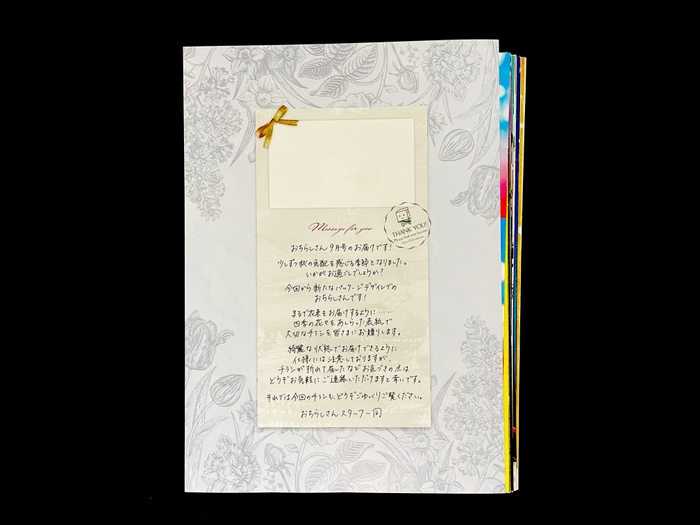 Message for you
THANK YOU!
おちらしさん 9月号のお届けです！
少しずつ秋の気配を感じる季節となりました。
いかがお過ごしでしょうか？
今回から新たなパッケージデザインでの
おちらしさんです！
まるで花束をお届けするように……
四季の花々をあしらった表紙で
大切なチラシを皆さまにお贈りします。
綺麗な状態でお届けできるように
仕様には注意しておりますが、
チラシが折れて届いたなどお気づきの点は
どうぞお気軽にご連絡いただけますと幸いです。
それでは今回のチラシも、どうぞごゆっくりご覧ください。
おちらしさんスタッフ一同